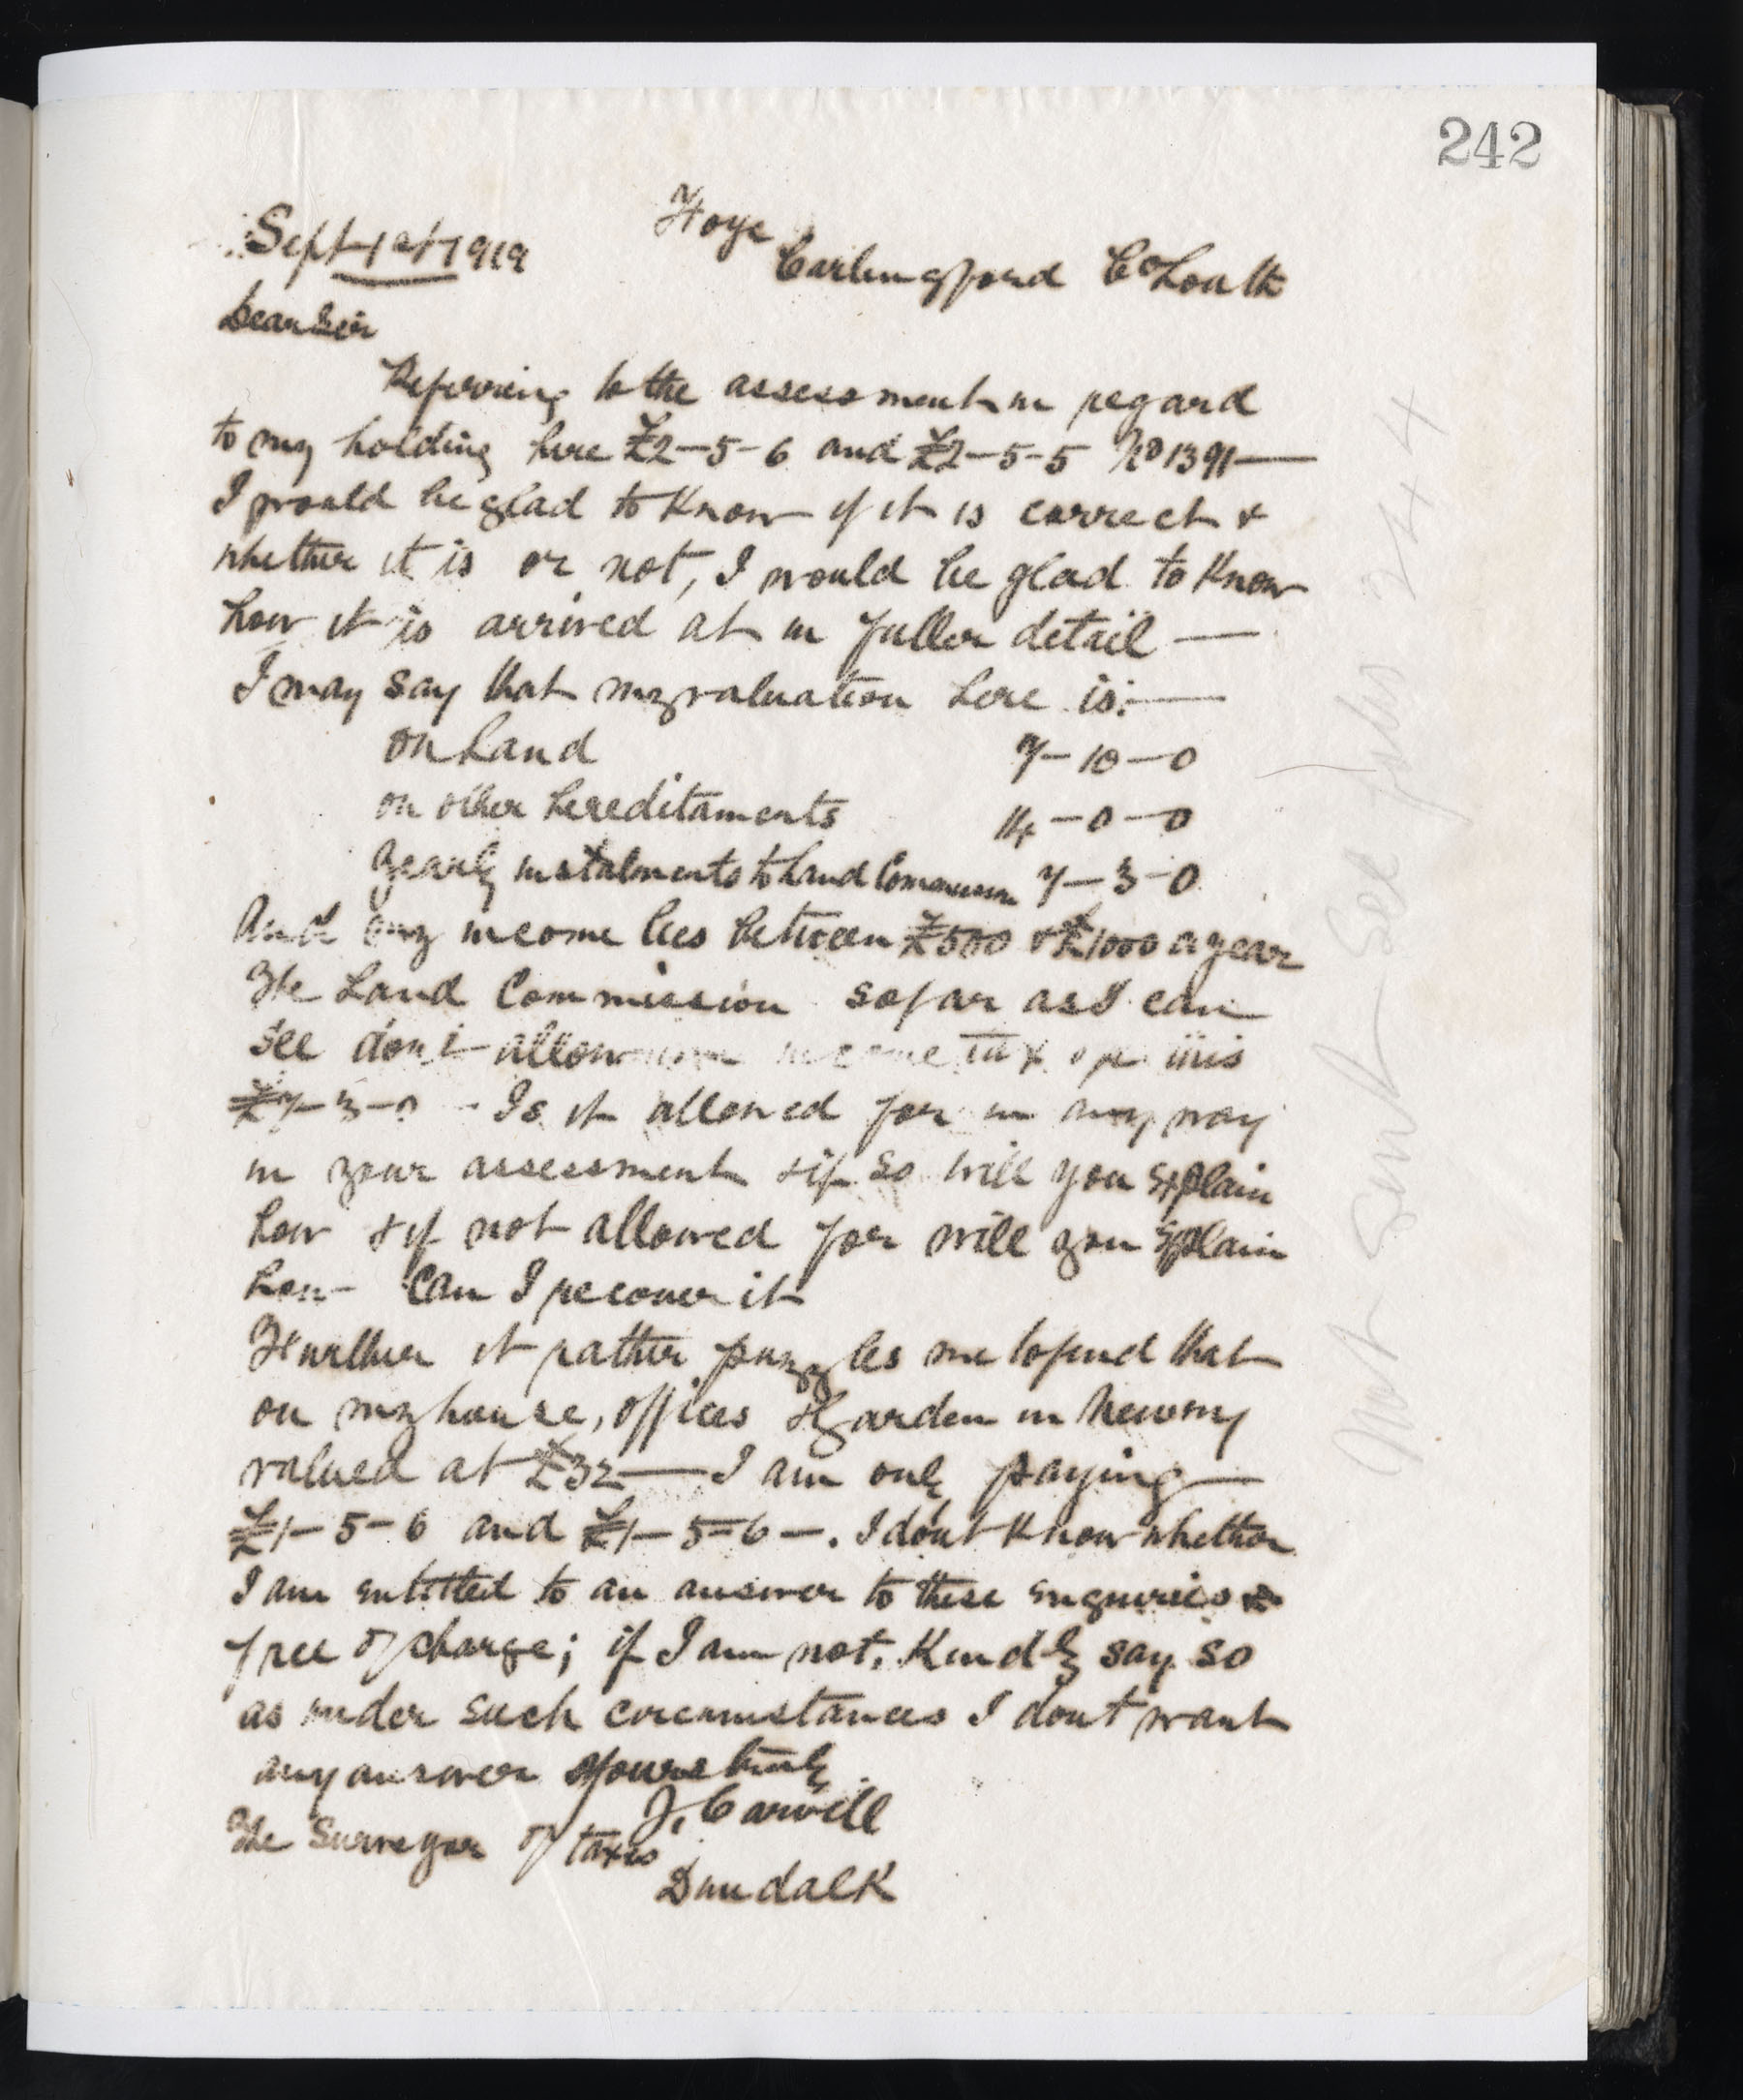 242
Sept 1st 1919
Foye
Carlingford Co Louth
Dear Sir
Referring to the assessment in regard
to my holding here £2-5-6 and £2-5-5 No 1391—
I would be glad to know if it is correct &
whether it is or not, I would be glad to know
how it is arrived at in fuller detail —
I may say that my valuation here is:—
On Land 7-10-0
on other hereditaments 14-0-0
Yearly instalments to Land Commission 7-3-0
And my income lies between £500 & £1000 a year
The Land Commission so far as I can
see don't allow income tax on this
£7-3-0 - Is it allowed for in any way
in your assessment & if so will you explain
how & if not allowed for will you explain
how can I recover it
Further it rather puzzles me to find that
on my house, offices & garden in Newry
valued at £32 — I am only paying —
£1-5-6 and £1-5-6 —. I don't know whether
I am entitled to an answer to these enquiries
free of charge; if I am not, Kindly say so
as under such circumstances I dont want
any answer Yours truly
J. Carvill
The Surveyor of taxes
Dundalk
Not Sent - See folio 244